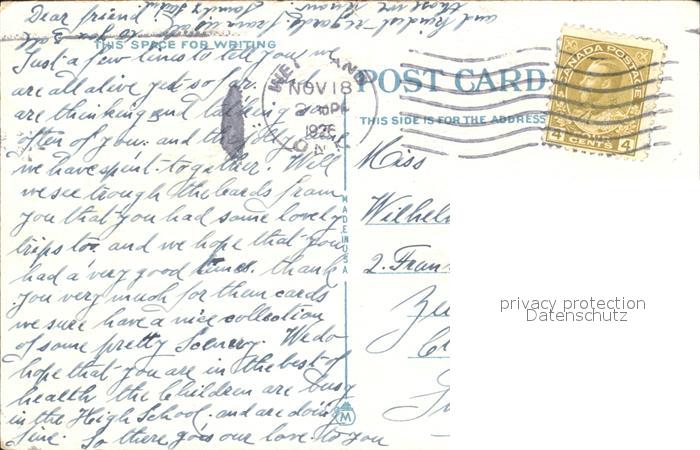 Dear friend
THIS SPACE FOR WRITING
Just a few lines to tell you we
are all alive yet so far. and
are thinking and talking
often of you. and the jolly time
we have spent together. Well
we see trough the cards from
you that you had some lovely
trips too. and we hope that you
had a very good times. thank
you very much for them cards
we sure have a nice collection
of some pretty Scenery. We do
hope that you are in the best of
health the Children are busy
in the High School. and are doing
fine. So there goes our love to you
and kindest regards from
MADE IN USA
WELLAND
NOV 18
PM
1926
ONT
POST CARD
THIS SIDE IS FOR THE ADDRESS
CANADA POSTAGE
4 CENTS 4
Miss
Wilhel
2. Fran
privacy protection
Datenschutz